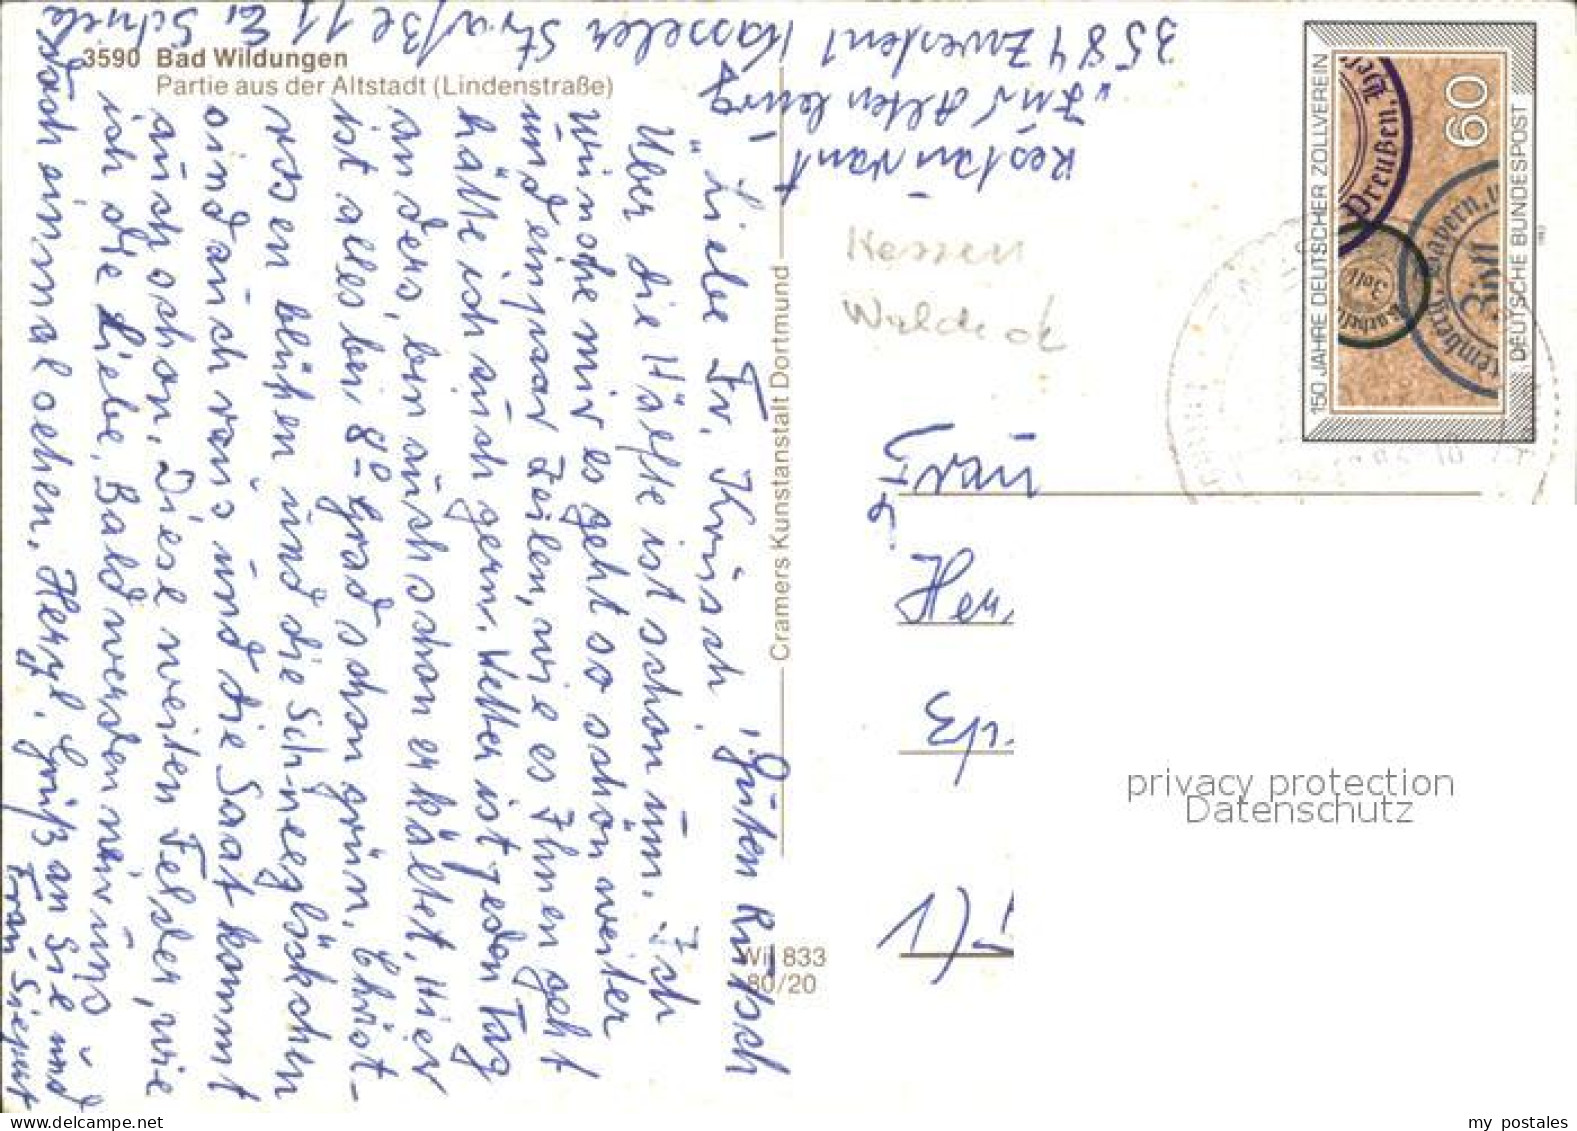 3590 Bad Wildungen
Partie aus der Altstadt (Lindenstraße)
"Guten Rutsch"
Liebe Fr.
Über die Hälfte ist schon um. Ich
wünsche mir es geht so schön weiter
und ein paar Zeilen, wie es Ihnen geht
hätte ich auch gern. Wetter ist jeden Tag
anders, bin auch schon erkältet. Hier
ist alles bei 8° Grad schon grün. Christ-
rosen blühen und die Schneeglöckchen
sind auch raus und die Saat kommt
auch schon. Diese weiten Felder, wie
ich die liebe. Bald werden wir uns
doch einmal sehen. Herzl. Gruß an Sie und
Frau
Restaurant
"Zur Altenburg"
3584 Zwesten 1 Kasseler Straße 11
Cramers Kunstanstalt Dortmund
Wil 833
80/20
Hessen
Waldeck
150 JAHRE DEUTSCHER ZOLLVEREIN
60
DEUTSCHE BUNDESPOST
Preußen
Bayern
Zoll
Frau
privacy protection
Datenschutz
my postales